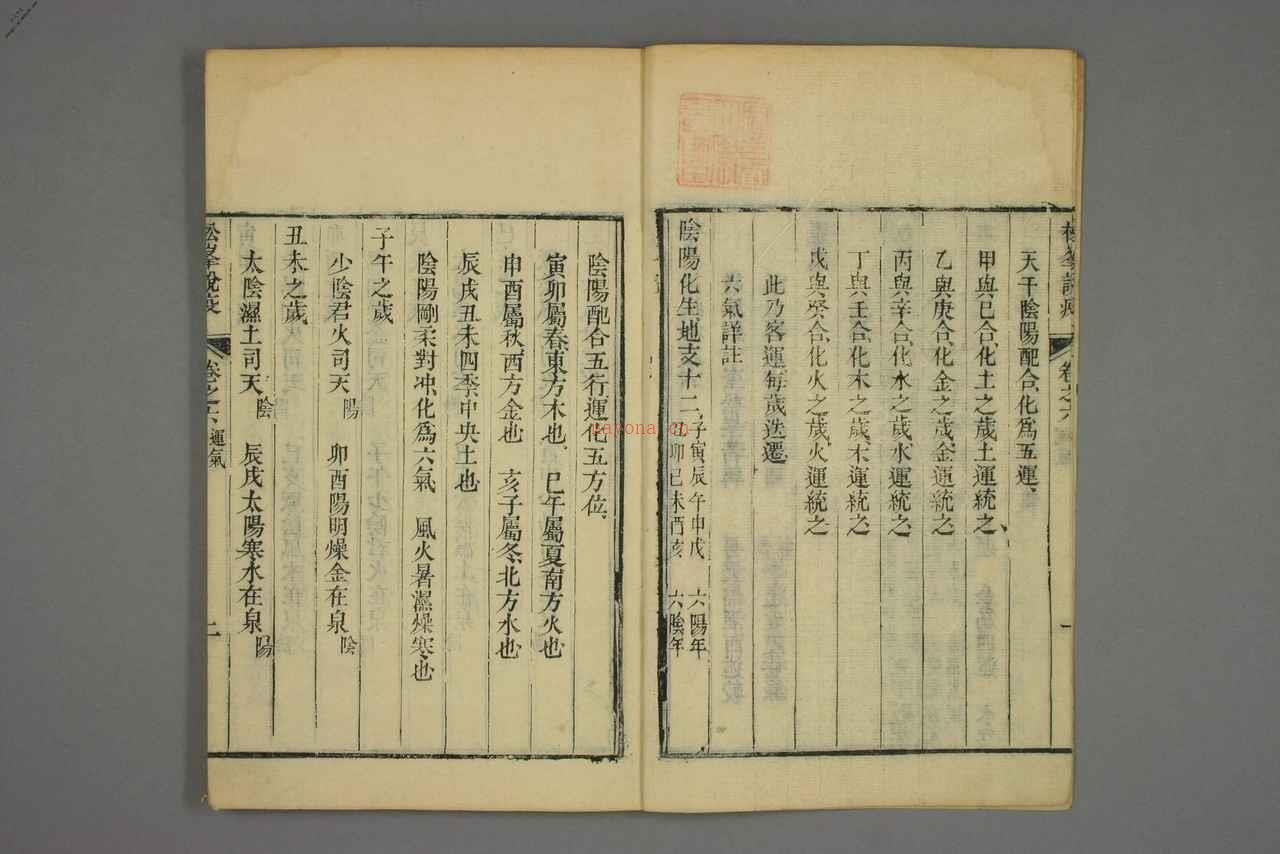 天干陰陽配合化爲五運
甲與己合化土之歲土運統之
乙與庚合化金之歲金運統之
丙與辛合化水之歲水運統之
丁與壬合化木之歲木運統之
戊與癸合化火之歲火運統之
此乃客運每歲迭遷
六氣詳註
陰陽化生地支十二子寅辰午申戌 六陽年
丑卯巳未酉亥 六陰年
卷之六
一
陰陽配合五行運化五方位
寅卯屬春東方木也 巳午屬夏南方火也
申酉屬秋西方金也 亥子屬冬北方水也
辰戌丑未四季中央土也
陰陽剛柔對冲化爲六氣 風火暑濕燥寒也
子午之歲
少陰君火司天陽 卯酉陽明燥金在泉陰
丑未之歲
太陰濕土司天陰 辰戌太陽寒水在泉陽
松峯說疫 卷之六 運氣
二